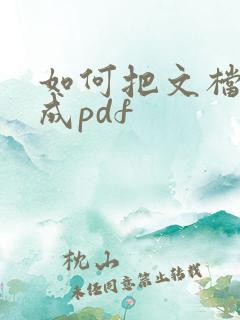 如何把文檔
成pdf
枕山
未经同意禁止转载